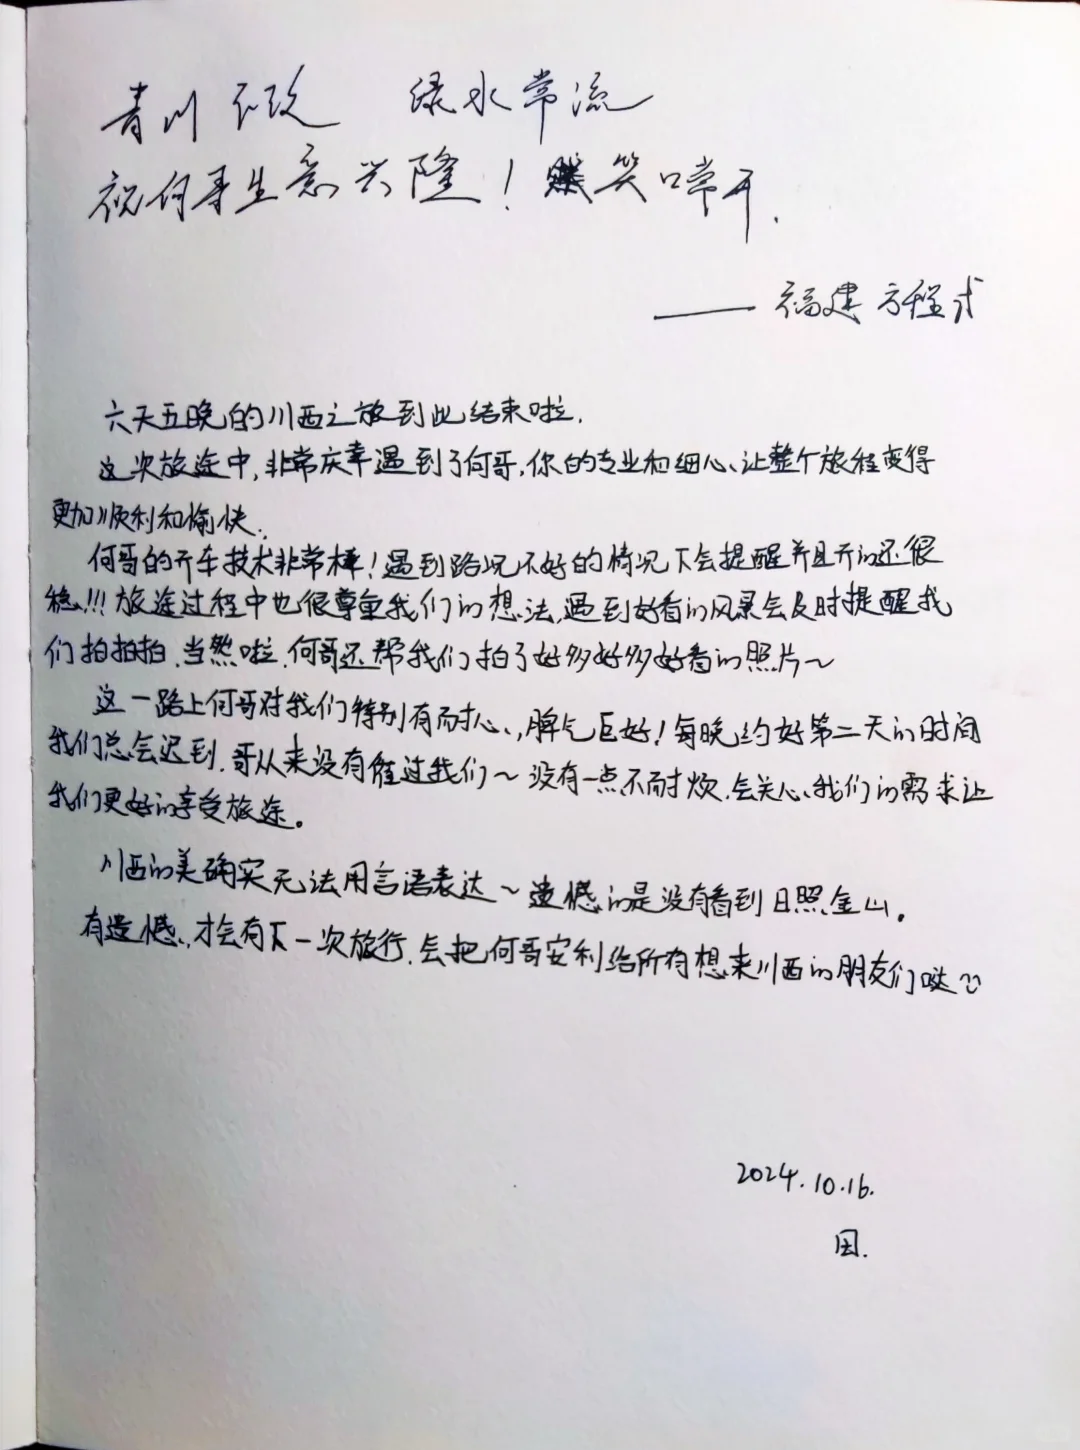 青川不改 绿水常流
祝何哥生意兴隆！笑口常开.
——福建方程式
六天五晚的川西之旅到此结束啦.
这次旅途中,非常庆幸遇到了何哥,你的专业和细心、让整个旅程变得
更加顺利和愉快.
何哥的开车技术非常棒!遇到路况不好的情况下会提醒并且开的还很
稳!!!旅途过程中也很尊重我们的想法,遇到好看的风景会及时提醒我
们拍拍拍.当然啦.何哥还帮我们拍了好多好多好看的照片~
这一路上何哥对我们特别有耐心,脾气巨好!每晚约好第二天的时间
我们总会迟到.哥从来没有催过我们~没有一点不耐烦.会关心我们的需求让
我们更好的享受旅途。
川西的美确实无法用言语表达~遗憾的是没有看到日照金山.
有遗憾,才会有下一次旅行.会把何哥安利给所有想来川西的朋友们哒
2024.10.16.